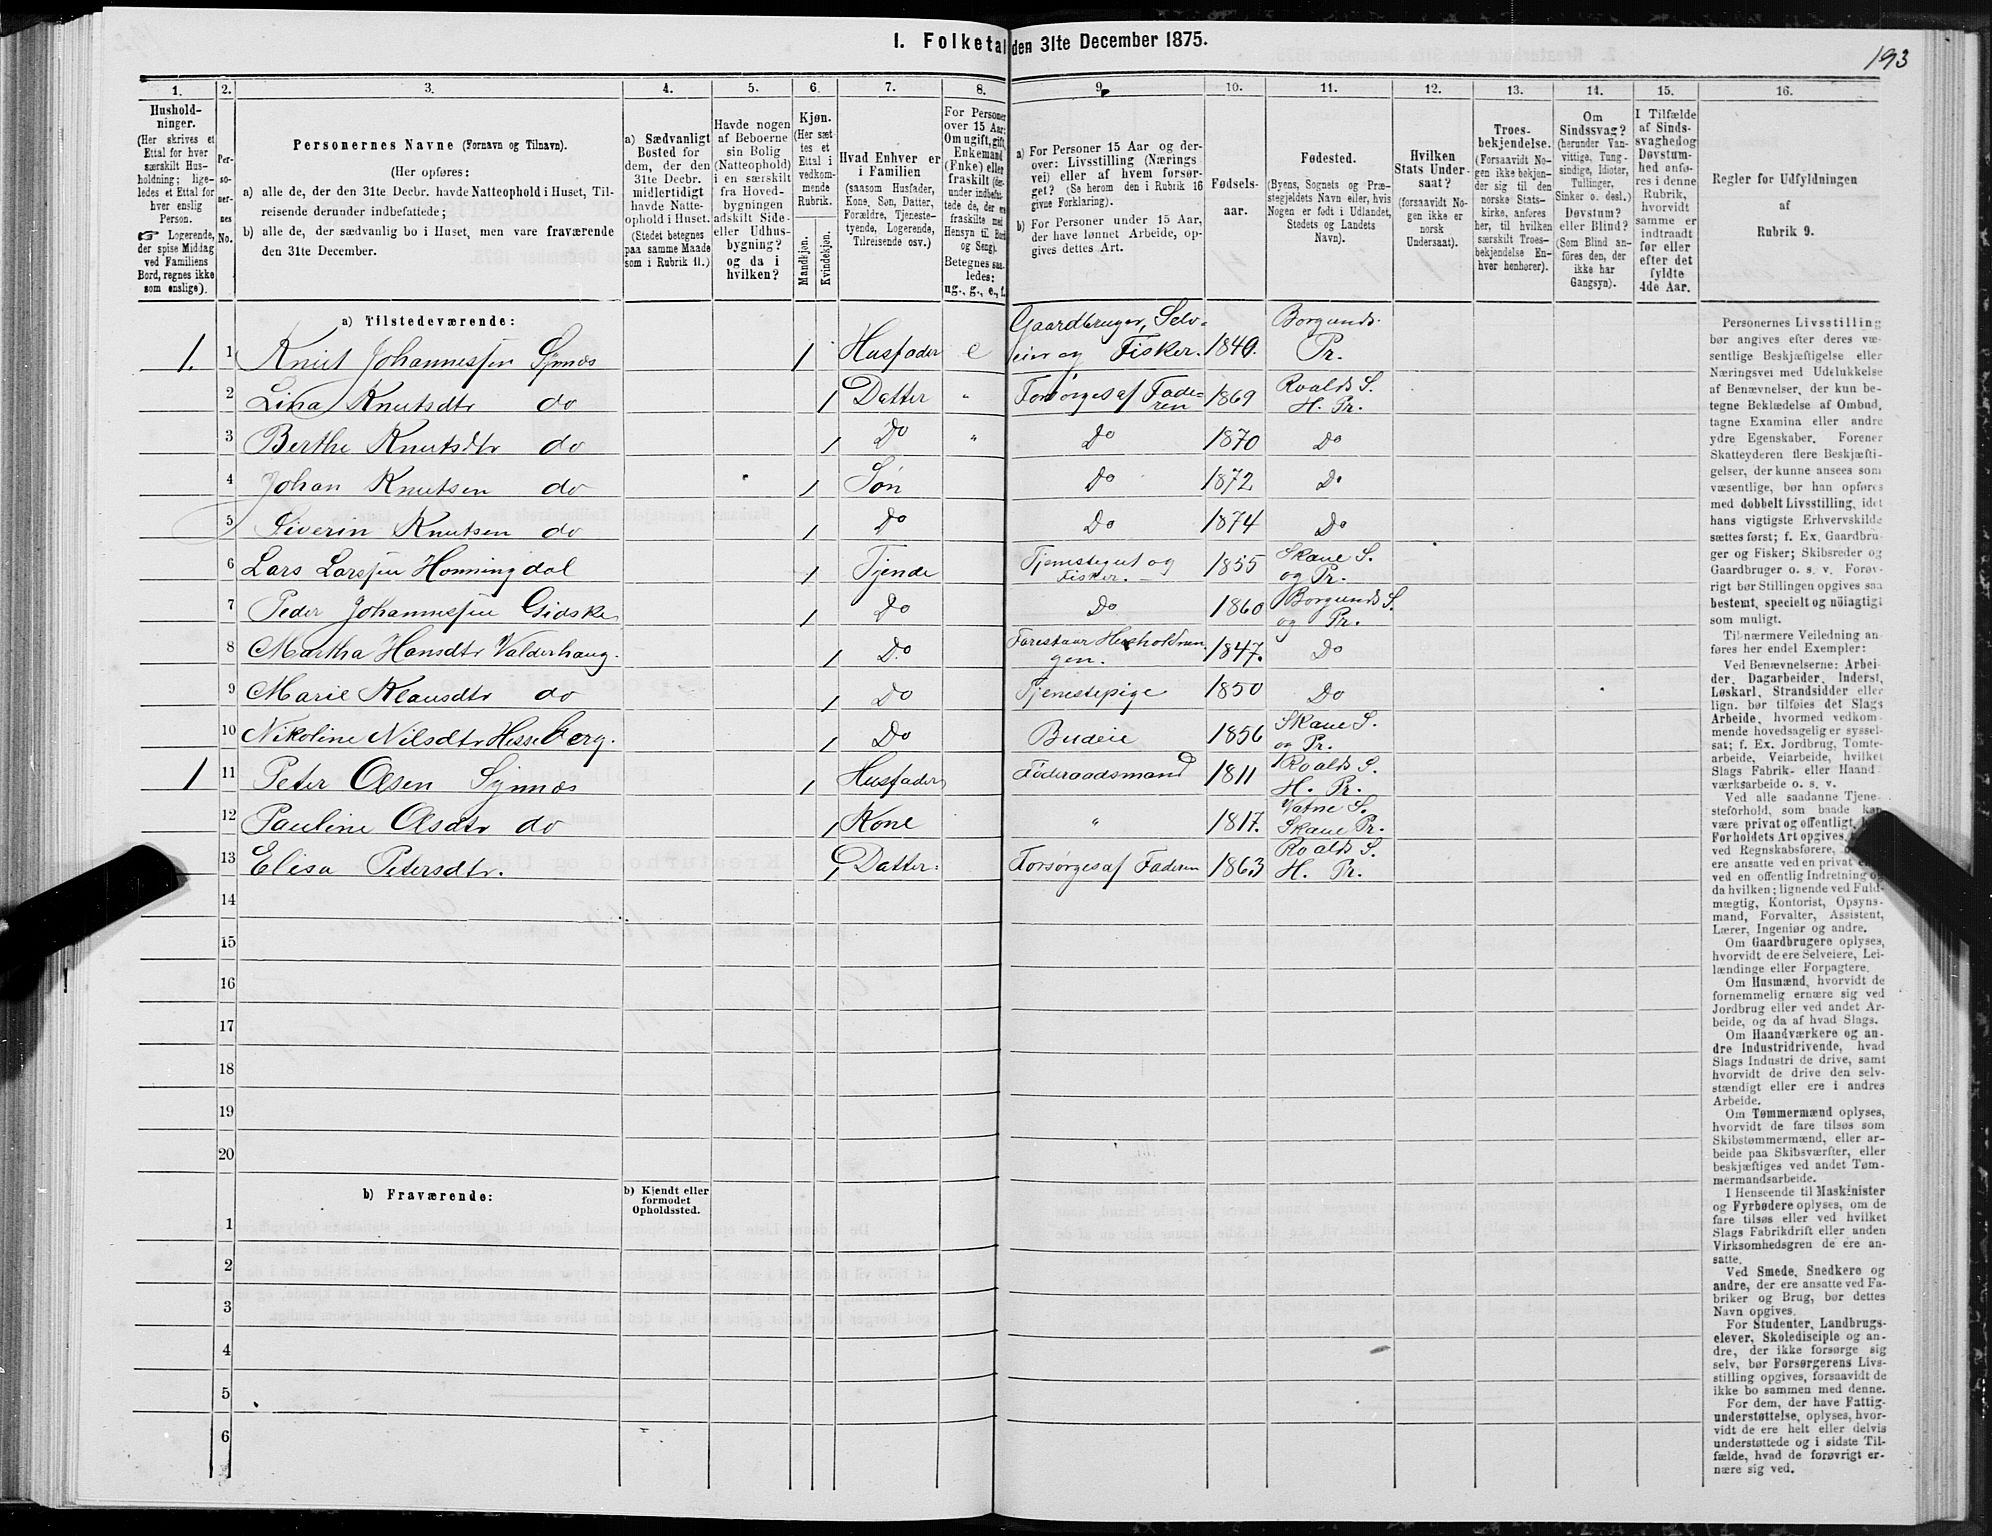 193
I. Folketal den 31te December 1875.
1. 2. 3. 4. 5. 6. 7. 8. 9. 10. 11. 12. 13. 14. 15. 16.
Hushold-
ninger.
(Her skrives et
Ettal for hver
særskilt Hus-
holdning; lige-
ledes et Ettal for
hver enslig
Person.
☞ Logerende,
der spise Middag
ved Familiens
Bord, regnes ikke
som enslige).
Per-
so-
ner-
nes
No.
Personernes Navne (Fornavn og Tilnavn).
(Her opføres:
a) alle de, der den 31te Decbr. havde Natteophold i Huset, Til-
reisende derunder indbefattede;
b) alle de, der sædvanlig bo i Huset, men vare fraværende
den 31te December.
a) Sædvanligt
Bosted for
dem, der den
31te Decbr.
midlertidigt
havde Natte-
ophold i Huset.
(Stedet betegnes
paa samme Maade
som i Rubrik 11.)
Havde nogen
af Beboerne
sin Bolig
(Natteophold)
i en særskilt
fra Hoved-
bygningen
adskilt Side-
eller Udhus-
bygning?
og da i
hvilken?
Kjøn.
(Her sæt-
tes et
Ettal i
vedkom-
mende
Rubrik.
Mandkjøn.
Kvindekjøn.
Hvad Enhver er
i Familien
(saasom Husfader,
Kone, Søn, Datter,
Forældre, Tjeneste-
tyende, Logerende,
Tilreisende osv.)
For Personer
over 15 Aar:
Om ugift, gift,
Enkemand
(Enke) eller
fraskilt
Betegnes saa-
ledes:
ug., g., e., f.
a) For Personer 15 Aar og der-
over: Livsstilling (Nærings-
vei) eller af hvem forsør-
get? (Se herom den i Rubrik 16
givne Forklaring).
b) For Personer under 15 Aar,
der have lønnet Arbeide, op-
gives dettes Art.
Fødsels-
aar.
Fødested.
(Byens, Sognets og Præ-
stegjeldets Navn eller, hvis
Nogen er født i Udlandet,
Stedets og Landets
Navn).
Hvilken
Stats Under-
saat?
(forsaavidt No-
gen ikke er
norsk
Undersaat).
Troes-
bekjendelse.
(Forsaavidt No-
gen ikke bekjen-
der sig til den
norske Stats-
kirke, anføres
her, til hvilken
særskilt Troes-
bekjendelse En-
hver henhører).
Om
Sindssvag?
(herunder Van-
vittige, Tung-
sindige, Idioter,
Tullinger,
Sinker o. desl.)
Døvstum?
eller Blind?
(Som Blind an-
føres den, der
ikke har
Gangsyn).
I Tilfælde
af Sinds-
svaghed og
Døvstum-
hed anfø-
res i denne
Rubrik,
hvorvidt
samme er
indtraadt
før eller
efter det
fyldte
4de Aar.
Regler for Udfyldningen
af
Rubrik 9.
a) Tilstedeværende:
1. 1 Knut Johannessen Synnæs 1 Husfader e Gaardbruger, Selv-eier og Fisker. 1840. Borgunds Pr.
2 Lina Knutsdtr do 1 Datter " Forsørges af Faderen 1869 Roalds S. H. Pr.
3 Berthe Knutsdtr do 1 Do " Do 1870 Do
4 Johan Knutsen do 1 Søn Do 1872 Do
5 Siverin Knutsen do 1 Do Do 1874 Do
6 Lars Larssen Honningdal 1 Tjende Tjenestegut og Fisker. 1855 Skaue S. og Pr.
7 Peder Johannessen Gidske 1 Do Do 1860 Borgunds S. og Pr.
8 Martha Hansdtr Valderhaug. 1 Do Forestaar Husholdningen. 1847. Do
9 Marie Klausdtr do 1 Do Tjenestepige 1850 Do
10 Nikoline Nilsdtr Hesseberg. 1 Do Budeie 1856 Skaue S. og Pr.
1 11 Peter Olsen Synnæs 1 Husfader Føderaadsmand 1811 Roalds S. H. Pr.
12 Pauline Olsdtr do 1 Kone " 1817. Vatne S. Skaue Pr.
13 Elisa Petersdtr. 1 Datter: Forsørges af Faderen 1863 Roalds S. H. Pr.
14
15
16
17
18
19
20
b) Fraværende:
b) Kjendt eller
formodet
Opholdssted.
1
2
3
4
5
6
Personernes Livsstilling
bør angives efter deres væ-
sentlige Beskjæftigelse eller
Næringsvei med Udelukkelse
af Benævnelser, der kun be-
tegne Beklædelse af Ombud,
tagne Examina eller andre
ydre Egenskaber. Forener
Skatteyderen flere Beskjæfti-
gelser, der kunne ansees som
væsentlige, bør han opføres
med dobbelt Livsstilling, idet
hans vigtigste Erhvervskilde
sættes først; f. Ex. Gaardbru-
ger og Fisker; Skibsreder og
Gaardbruger o. s. v. Forøv-
rigt bør Stillingen opgives saa
bestemt, specielt og nöiagtigt
som muligt.
Til nærmere Veiledning an-
føres her endel Exempler:
Ved Benævnelserne: Arbei-
der, Dagarbeider, Inderst,
Løskarl, Strandsidder eller
lign. bør tilføies det Slags
Arbeide, hvormed vedkom-
mende hovedsagelig er syssel-
sat; f. Ex. Jordbrug, Tomte-
arbeide, Veiarbeide, hvilket
Slags Fabrik- eller Haand-
værksarbeide o. s. v.
Ved alle saadanne Tjene-
steforhold, som baade kan
være privat og offentligt,
Forholdets Art opgives,
ved Regnskabsførere,
ere ansatte ved en privat
ved en offentlig Indretning og
da hvilken; lignende ved Fuld-
mægtig, Kontorist, Opsyns-
mand, Forvalter, Assistent,
Lærer, Ingeniør og andre.
Om Gaardbrugere oplyses,
hvorvidt de ere Selveiere, Lei-
lændinge eller Forpagtere.
Om Husmænd, hvorvidt de
fornemmelig ernære sig ved
Jordbrug eller ved andet Ar-
beide, og da af hvad Slags.
Om Haandværkere og an-
dre Industridrivende, hvad
Slags Industri de drive, samt
hvorvidt de drive den selv-
stændigt eller ere i andres
Arbeide.
Om Tømmermænd oplyses,
hvorvidt de fare tilsøs som
Skibstømmermænd, eller ar-
beide paa Skibsværfter, eller
beskjæftiges ved andet Tøm-
mermandsarbeide.
I Henseende til Maskinister
og Fyrbødere oplyses, om de
fare tilsøs eller ved hvilket
Slags Fabrikdrift eller anden
Virksomhedsgren de ere an-
satte.
Ved Smede, Snedkere og
andre, der ere ansatte ved Fa-
briker og Brug, bør dettes
Navn opgives.
For Studenter, Landbrugs-
elever, Skoledisciple og an-
dre, der ikke forsørge sig
selv, bør Forsørgerens Livs-
stilling opgives, forsaavidt de
ikke bo sammen med denne.
For dem, der have Fattig-
understøttelse, oplyses, hvor-
vidt de ere helt eller delvis
understøttede og i sidste Til-
fælde, hvad de forøvrigt er-
nære sig ved.